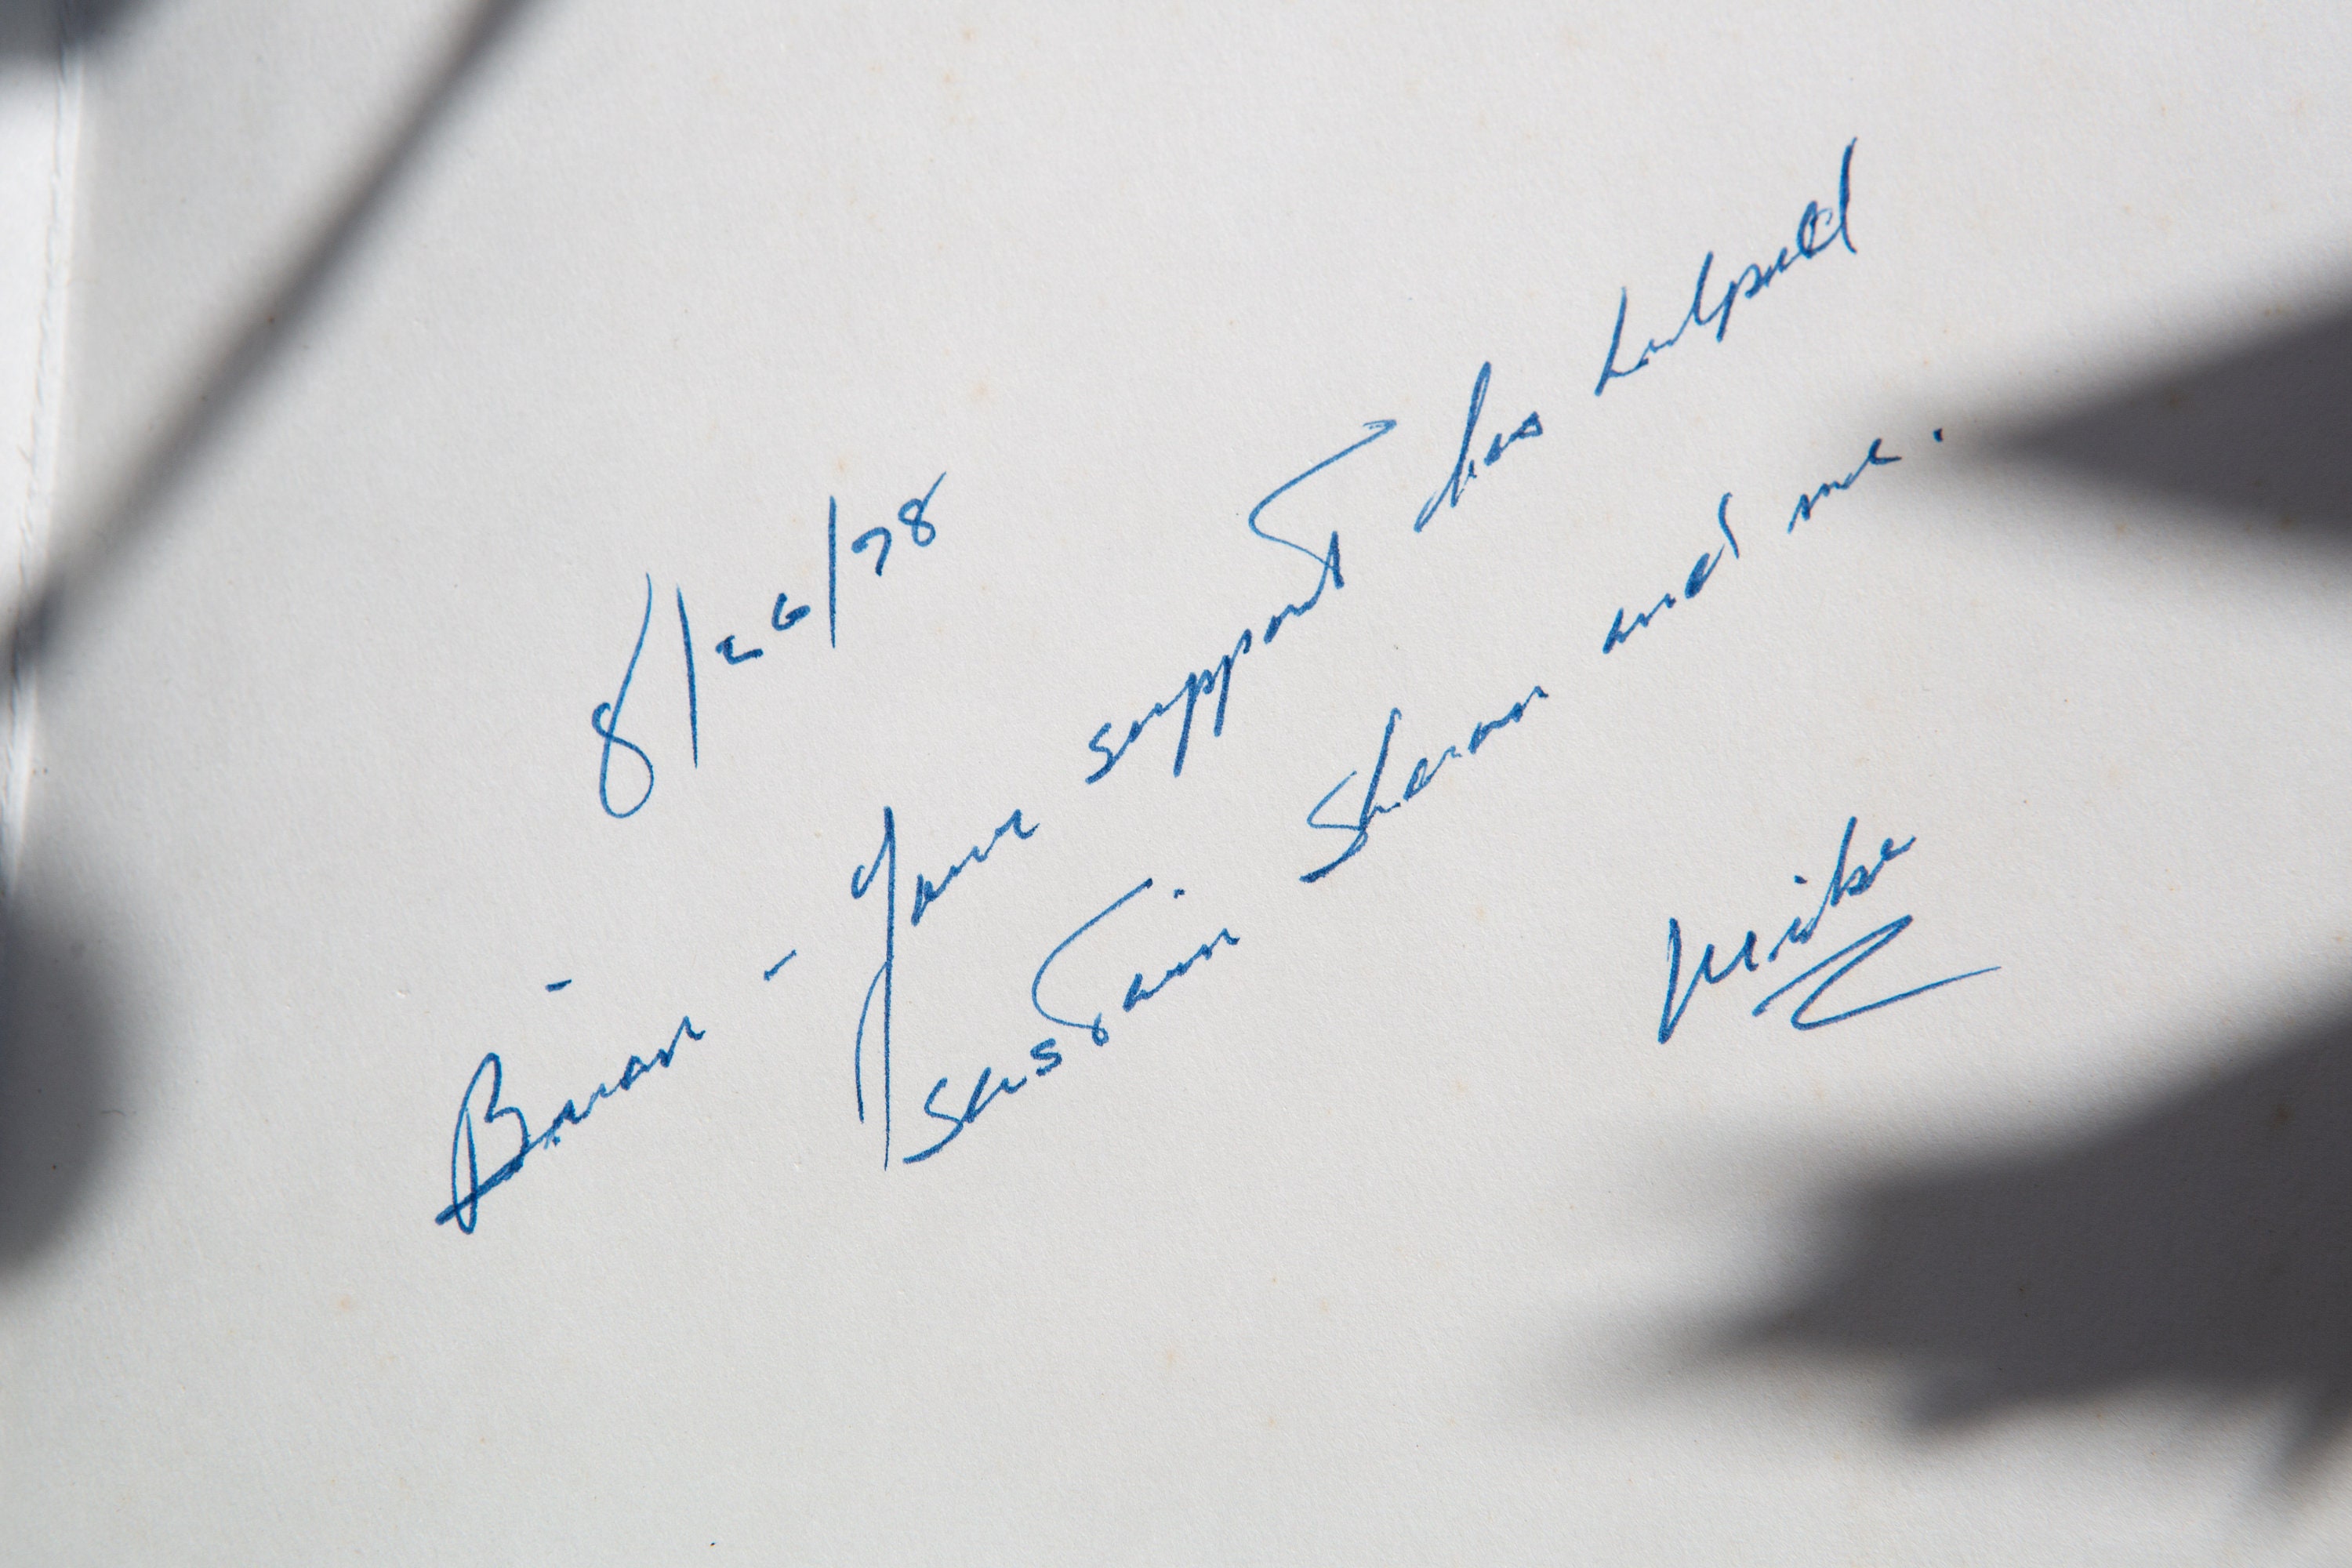 8/26/78
Brian - Your support has helped
sustain Sharon and me.
Mike